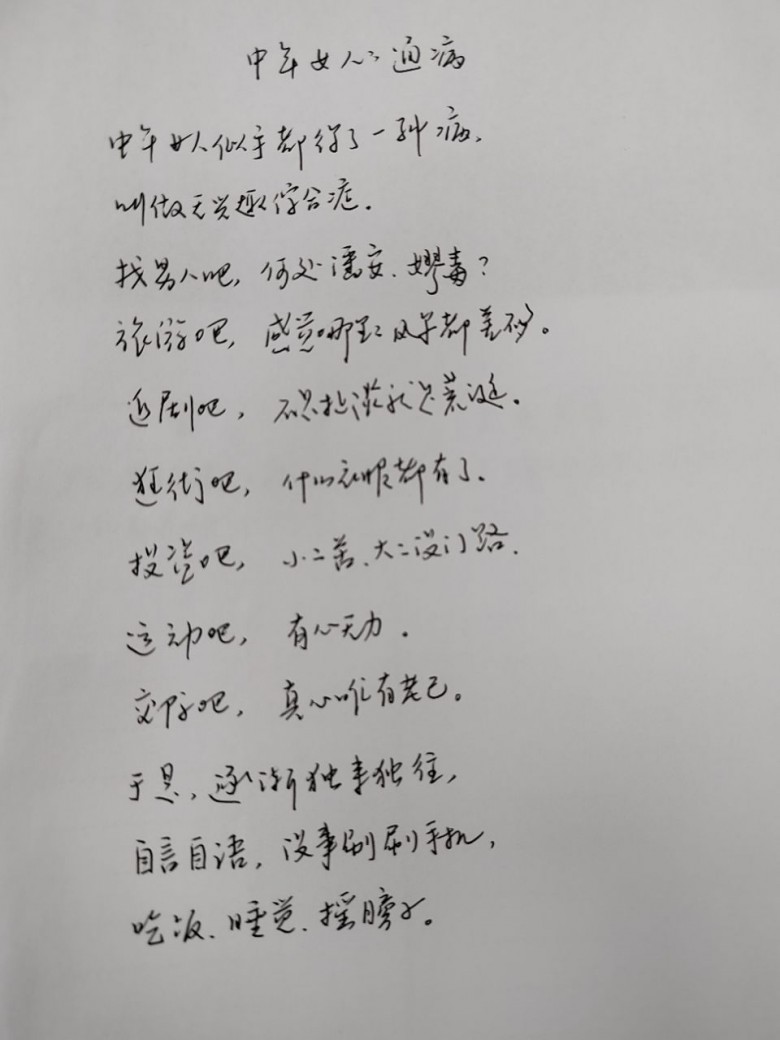 中年女人通病
中年女人似乎都得了一种病,
叫做无兴趣综合症.
找男人吧, 何处潘安、嫪毒?
旅游吧, 感觉哪里风景都差不多。
追剧吧, 不是扯淡就是荒诞.
逛街吧, 什么衣服都有了.
投资吧, 小苦、大没门路.
运动吧, 有心无力.
交际吧, 真心唯有老己。
于是, 逐渐独来独往,
自言自语, 没事刷刷手机,
吃饭、睡觉、摇膀子。